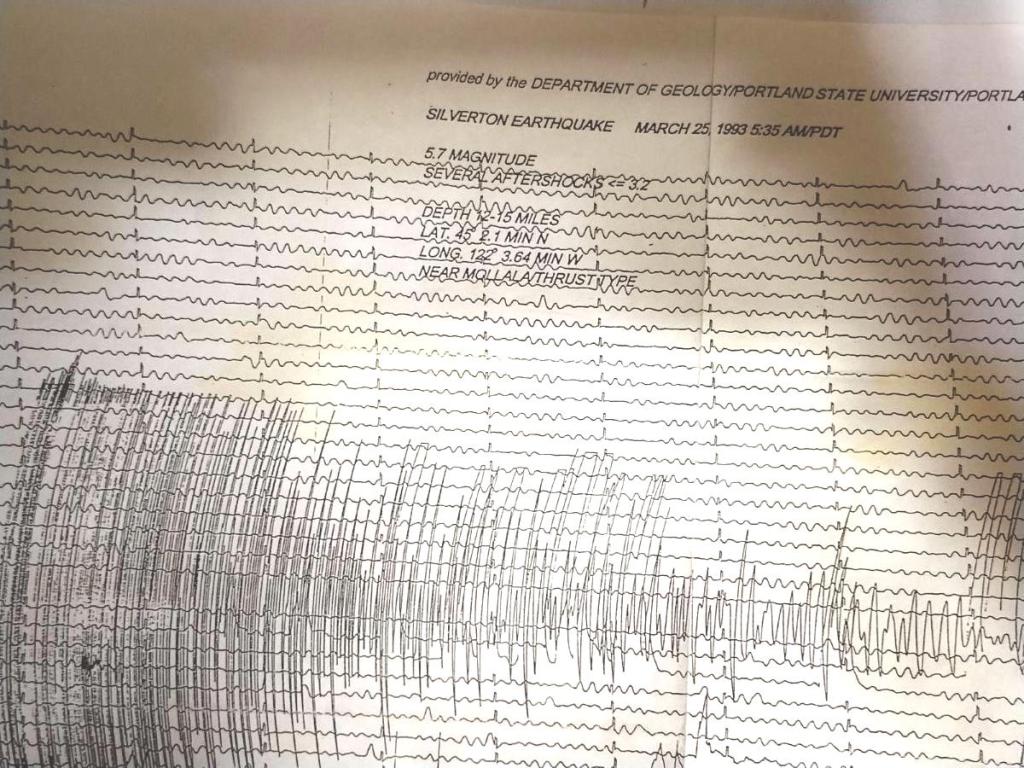 provided by the DEPARTMENT OF GEOLOGY/PORTLAND STATE UNIVERSITY/PORTLA
SILVERTON EARTHQUAKE MARCH 25, 1993 5:35 AM/PDT
5.7 MAGNITUDE
SEVERAL AFTERSHOCKS <= 3.2
DEPTH 12-15 MILES
LAT. 45 2.1 MIN N
LONG. 122 3.64 MIN W
NEAR MOLLALA/THRUST TYPE